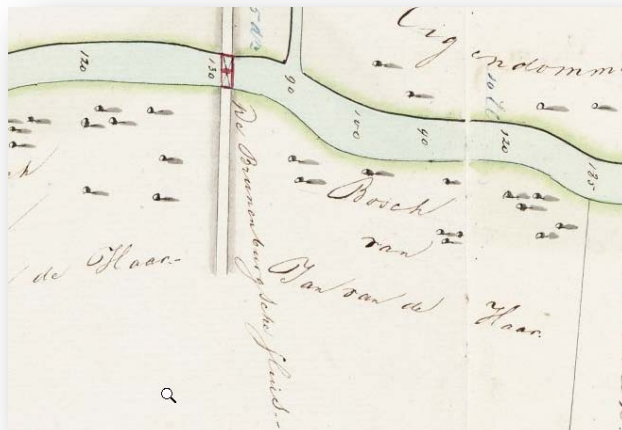 Eigendomm
120
130
90
100
90
120
125
De Brunenburgsche sluis.
Bosch
van
Jan van de Haar.
de Haar.